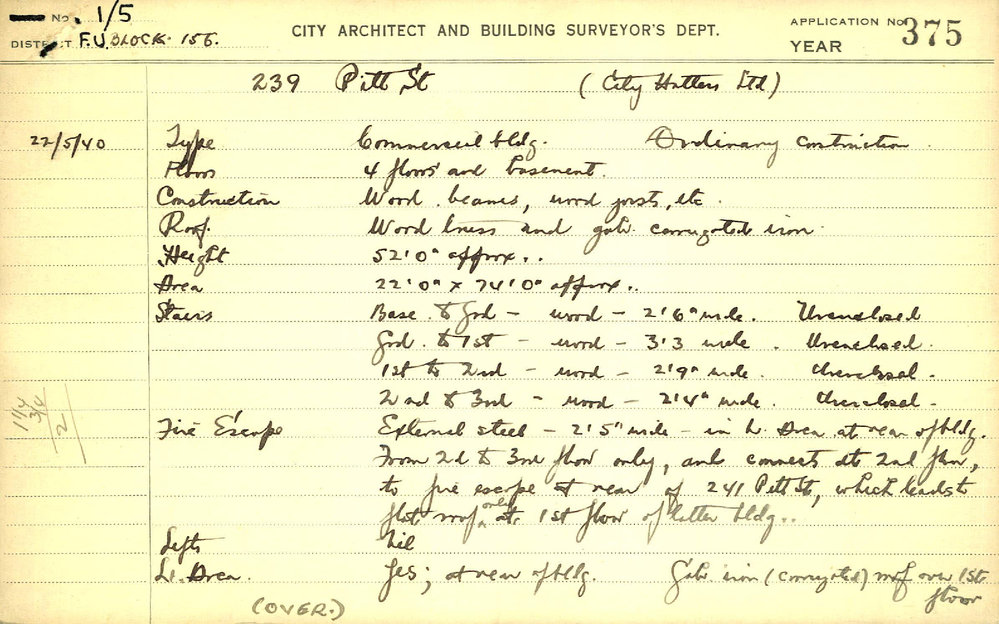 No. 1/5
DISTRICT F.U. BLOCK. 156.
CITY ARCHITECT AND BUILDING SURVEYOR'S DEPT.
APPLICATION No. 375
YEAR
239 Pitt St (City Hatters Ltd)
22/5/40 Type Commercial bldg. Ordinary construction.
Floors 4 floors and basement.
Construction Wood beams, wood joists, etc.
Roof. Wood truss and galv. corrugated iron.
Height 52'0" approx..
Area 22'0" x 74'0" approx..
Stairs Base. to Grd - wood - 2'6" wide. Unenclosed
Grd. to 1st - wood - 3'3 wide. Unenclosed.
1st to 2nd - wood - 2'9" wide. Unenclosed.
2nd to 3rd - wood - 2'4" wide. Unenclosed.
1 1/4
3/4
2
Fire Escape External steel - 2'5" wide - in L. Area at rear of bldg.
From 2d to 3rd floor only, and connects at 2nd floor,
to fire escape at rear of 241 Pitt St, which leads to
flat roof only at 1st floor of latter bldg..
Lifts Nil
Lt. Area. Yes; at rear of bldg. Galv iron (corrugated) roof over 1st
floor
(OVER.)